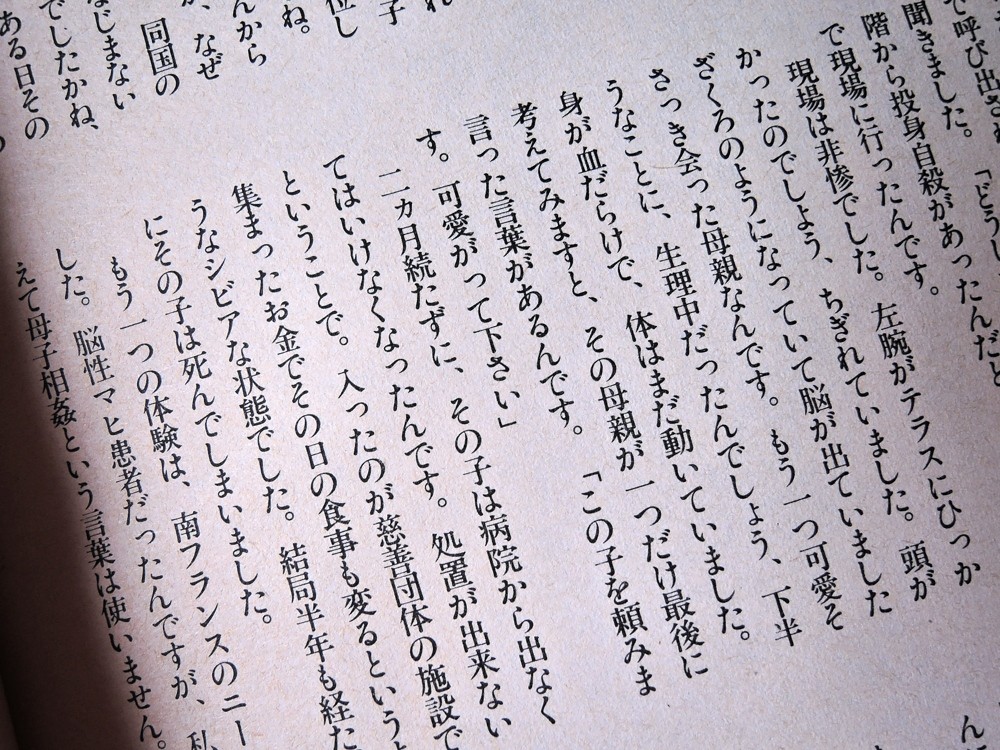 で呼び出され
聞きました。「どうし
階から投身自殺があったんだと
で現場に行ったんです。
現場は非惨でした。左腕がテラスにひっか
かったのでしょう、ちぎれていました。頭が
ざくろのようになっていて脳が出ていました
さっき会った母親なんです。もう一つ可愛そ
うなことに、生理中だったんでしょう、下半
身が血だらけで、体はまだ動いていました。
考えてみますと、その母親が一つだけ最後に
言った言葉があるんです。「この子を頼みま
す。可愛がって下さい」
二ヵ月続たずに、その子は病院から出なく
てはいけなくなったんです。処置が出来ない
ということで。入ったのが慈善団体の施設で
集まったお金でその日の食事も変るという
うなシビアな状態でした。結局半年も経た
にその子は死んでしまいました。
もう一つの体験は、南フランスのニー
した。脳性マヒ患者だったんですが、私
えて母子相姦という言葉は使いません。
位し
ね。
んから
、なぜ
同国の
なじまない
でしたかね、
ある日その